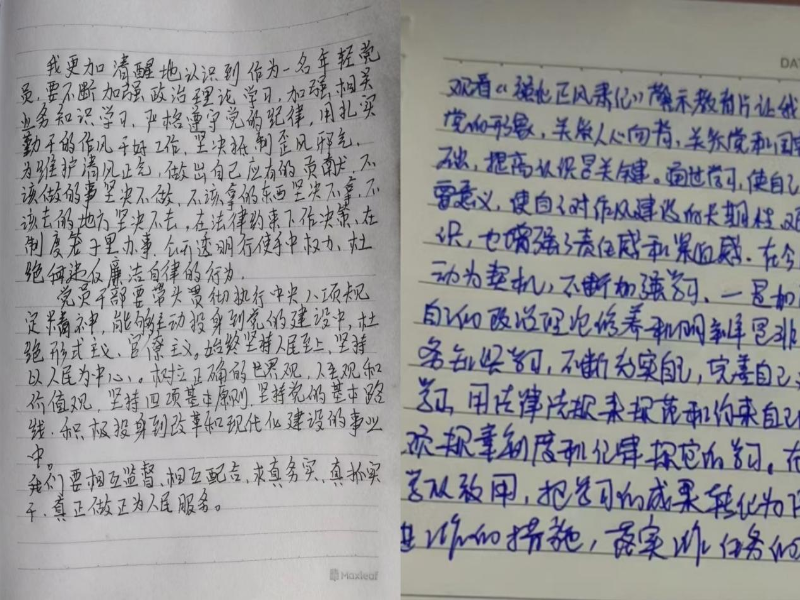 我更加清醒地认识到作为一名年轻党
员,要不断加强政治理论学习,加强相关
业务知识学习,严格遵守党的纪律,用扎实
勤干的作风干好工作,坚决抵制歪风邪气,
为维护清风正气,做出自己应有的贡献,不
该做的事坚决不做,不该拿的东西坚决不拿,不
该去的地方坚决不去,在法律约束下作决策、在
制度笼子里办事,公开透明行使手中权力,杜
绝何违反廉洁自律的行为.
党员干部要带头贯彻执行中央八项规
定精神,能够主动投身到党的建设中,杜
绝形式主义、官僚主义,始终坚持人民至上,坚持
以人民为中心,。树立正确的世界观、人生观和
价值观,坚持四项基本原则,坚持党的基本路
线.积极投身到改革和现代化建设的事业
中。
我们要相互监督、相互配合,求真务实,真抓实
干,真正做正为人民服务。
Maxleaf
DA
观看《强化正风肃纪》警示教育片让我
党的形象,关系人心向背,关系党和国
础,提高认识是关键。通过学习,使自己
要意义,使自己对作风建设的长期性
识,也增强了责任感和紧迫感.在今
动为契机,不断加强学习、一是加
自己的政治理论修养和明辨是非
务知识学习,不断充实自己,完善自己
学习,用法律法规来规范和约束自己
规章制度和纪律规定的学习.在
学以致用,把学习的成果转化为
进工作的措施,落实工作任务的